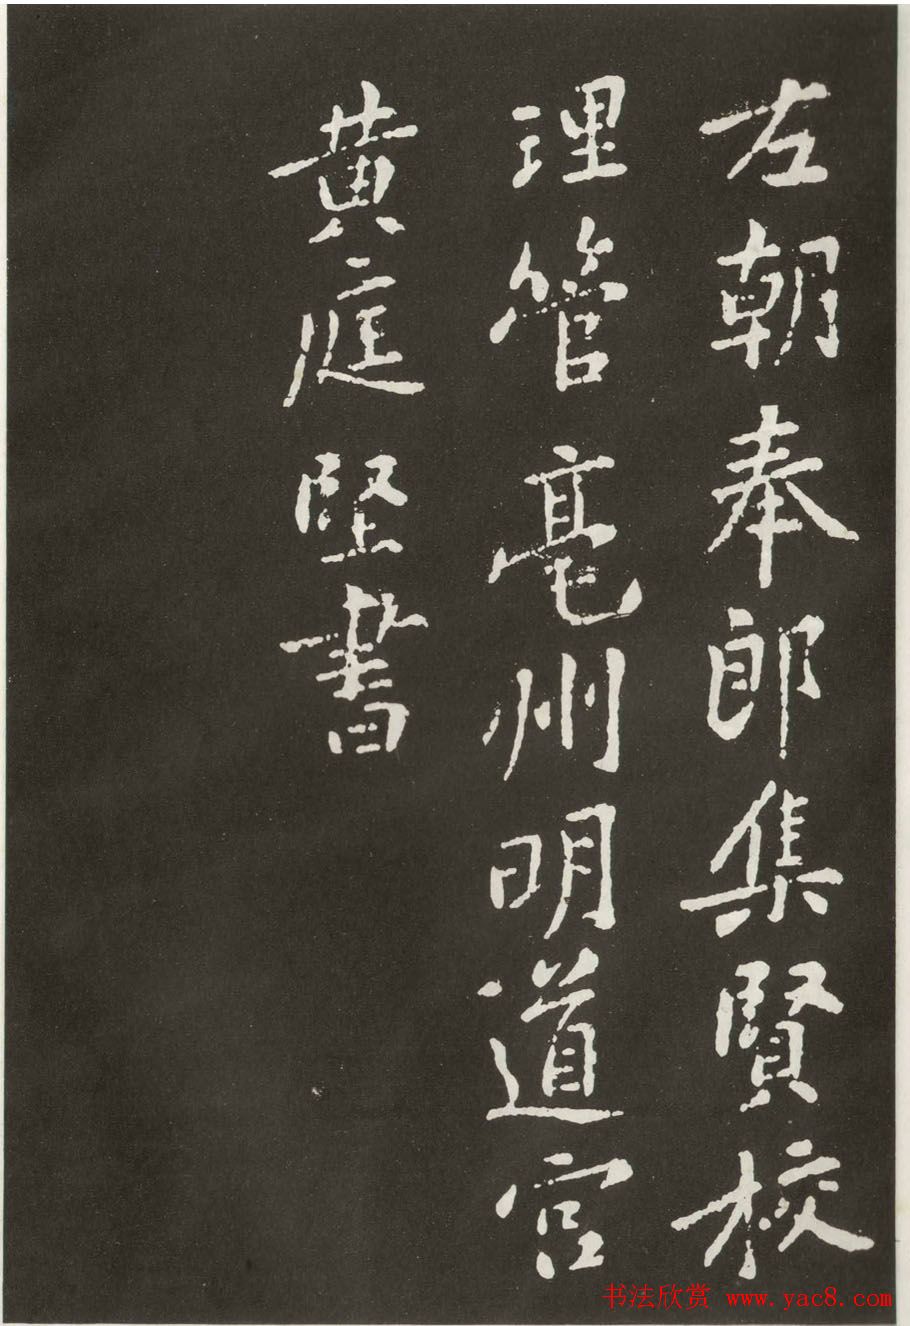 左朝奉郎集賢校
理管亳州明道宮
黄庭堅書
书法欣赏 www.yac8.com